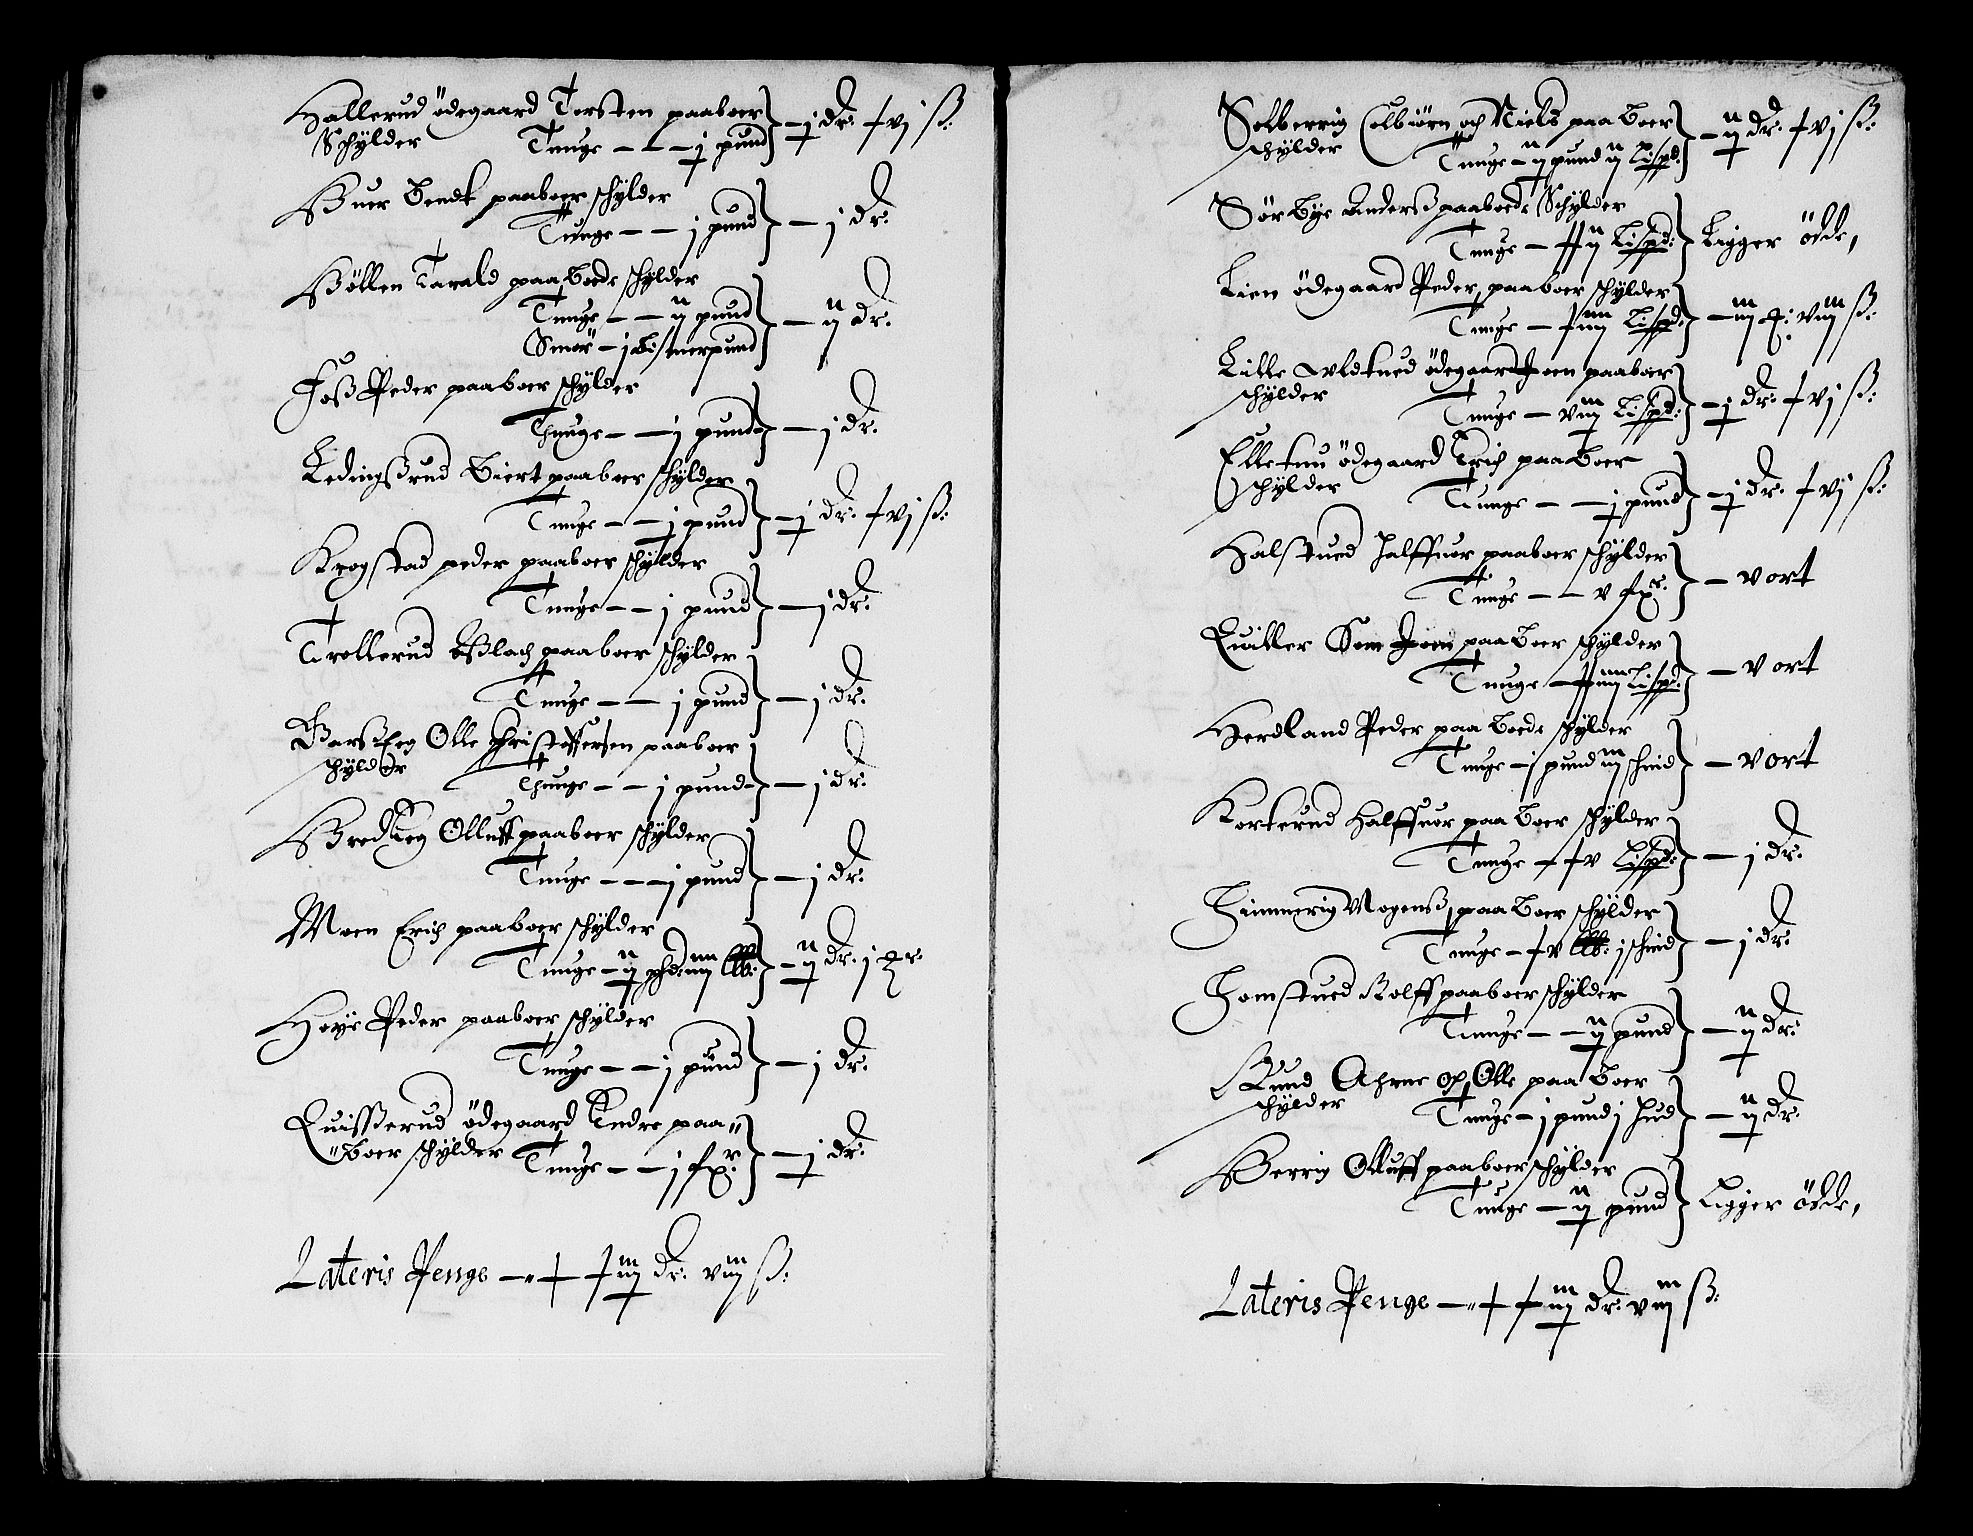 Hallerud ödegaard Torsten paaboer
Schÿlder Tunge — — j pund } — j dr: xvj ß:
Buer Bendt paaboer schÿlder
Tunge — — j pund } — j dr:
Böllen Tarald paa boede schÿlder
Tunge — — ij pund
Smör — j bismerpund } — ij dr:
Foß Peder paaboer schÿlder
Thunge — — j pund } — j dr:
Ledingßrud Biert paaboer schÿlder
Tunge — — j pund } — j dr: xvj ß:
Krogstad peder paaboer schÿlder
Tunge — — j pund } — j dr:
Trollerud Aßlach paaboer schÿlder
Tunge — — j pund } — j dr:
Olle Christoffersen paaboer
schÿlder Thunge — — j pund } — j dr:
Olluff paaboer schÿlder
Tunge — — j pund } — j dr:
Moen Erich paaboer schÿlder
Tunge — ij phd: iiij } — ij dr: j
Hoye Peder paaboer schÿlder
Tunge — — j pund } — j dr:
Quißerud ödegaard Endre paa
boer schÿlder Tunge — — j fxr: } — j dr:
Lateris Penge — xxiij dr: viij ß:
Solberrig Colbiörn och Niels paa boer
schÿlder Tunge — ij pund ij Lispd: } — ij dr: xvj ß:
Sörbÿe Anderß paaboede Schÿlder
Tunge — xxij Lispd: } Ligger öde,
Lien ödegaard Peder paaboer schÿlder
Tunge — xiiij Lispd: } — iij viij ß:
Lille ödegaard Joen paaboer
schÿlder Tunge — viij Lispd: } — j dr: xvj ß:
Elletuu ödegaard Erich paa boer
schÿlder Tunge — — j pund } — j dr: xvj ß:
Halßtued Halffuor paaboer schÿlder
Tunge — — v fxr: } — v ort
Quiller Joen paa boer schÿlder
Tunge — xxiiij Lispd: } — v ort
Herdland Peder paa boede schÿlder
Tunge — j pund iij schind } — v ort
Korterud Halffuor paa boer schÿlder
Tunge — xv Lispd: } — j dr:
Himmerig Mogenß paa boer schÿlder
Tunge — xv j schind } — j dr:
Homstued Rolff paaboer schÿlder
Tunge — — ij pund } — ij dr:
Rund Ahrne och Olle paa boer
schÿlder Tunge — j pund j hud } — ij dr:
Berrig Olluff paaboer schÿlder
Tunge — ij pund } Ligger öde,
Lateris Penge — xxiij dr: viij ß: